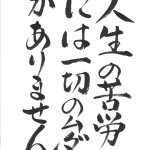 人生の苦労
には一切のムダ
がありません